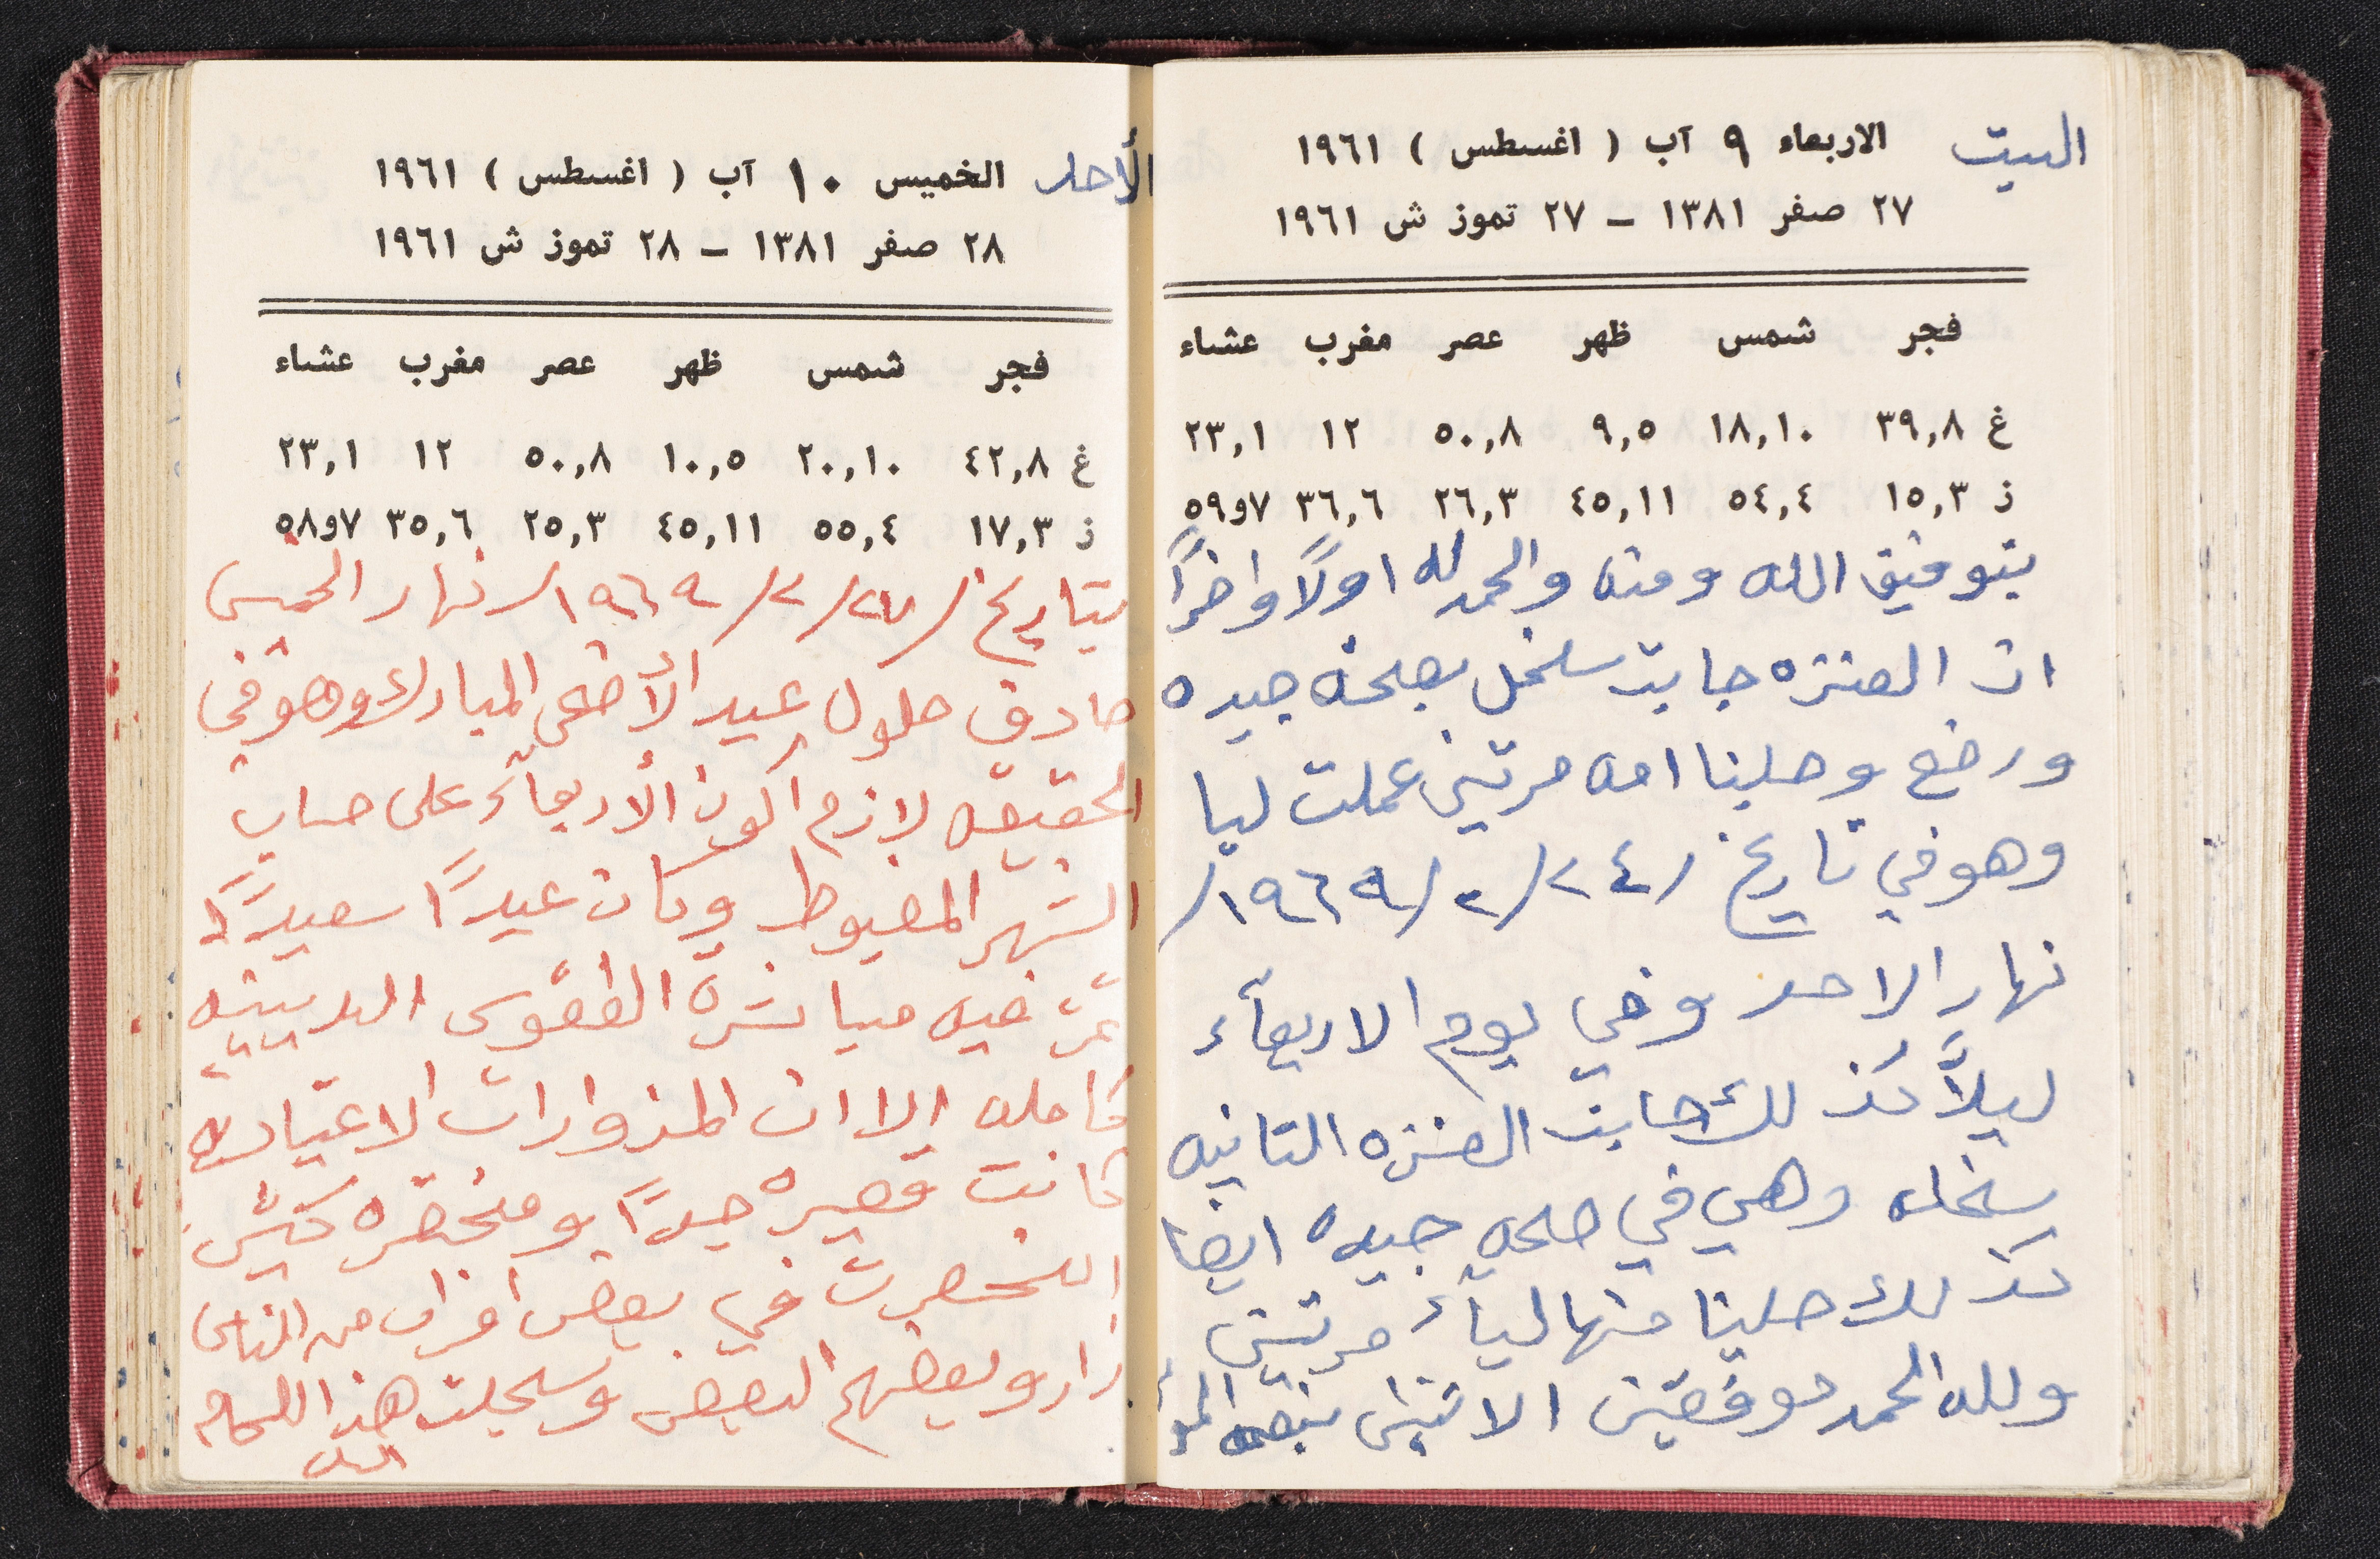 البيت
الاربعاء ٩ آب ( اغسطس ) ١٩٦١
٢٧ صفر ١٣٨١ – ٢٧ تموز ش ١٩٦١
فجر شمس ظهر عصر مغرب عشاء
غ ٣٩,٨ ١٨,١٠ ٩,٥ ٥٠,٨ ١٢ ٢٣,١
ز ١٥,٣ ٥٤,٤ ٤٥,١١ ٢٦,٣ ٣٦,٦ ٥٩و٧
بتوفيق الله ومنه والحمد لله اولاً واخراً
ان العنزه جابت سخل بصحه جيده
ورضع وحلبنا امه مرتين عملت ليا
وهو في تاريخ /٢٤/٢/١٩٦٩/
نهار الاحد وفي يوم الاربعآء
ليلاً كذلك جابت العنزه التانيه
سخله وهي في صحه جيده ايضا
كذلك حلبنا منها ليآء مرتين
ولله الحمد موفقين الاتنين
الأحد
الخميس ١٠ آب ( اغسطس ) ١٩٦١
٢٨ صفر ١٣٨١ – ٢٨ تموز ش ١٩٦١
فجر شمس ظهر عصر مغرب عشاء
غ ٤٢,٨ ٢٠,١٠ ١٠,٥ ٥٠,٨ ١٢ ٢٣,١
ز ١٧,٣ ٥٥,٤ ٤٥,١١ ٢٥,٣ ٣٥,٦ ٥٨و٧
بتاريخ /٢٧/٢/١٩٦٩/ نهار الخميس
صادف حلول عيد الأضحى المبارك وهو في
الحقيقه لازم اكون الأربعآء على حساب
الشهر المضبوط وكان عيداً سعيداً
تمت فيه مباشرة الطقوس الدينيه
كامله إلا ان المزوارات الاعتياديه
كانت قصيره جداً ومختصره كتير
انحصرت في بعض افراد من الناس
زارو بعضهم البعض وسجلت هذا